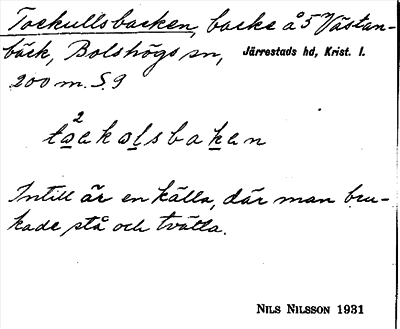 Tockullsbacken, backe å 5 Västan-
bäck, Bolshögs sn, Järrestads hd, Krist. l.
200 m. S. 9
Intill är en källa, där man bru-
kade stå och tvätta.
NILS NILSSON 1931